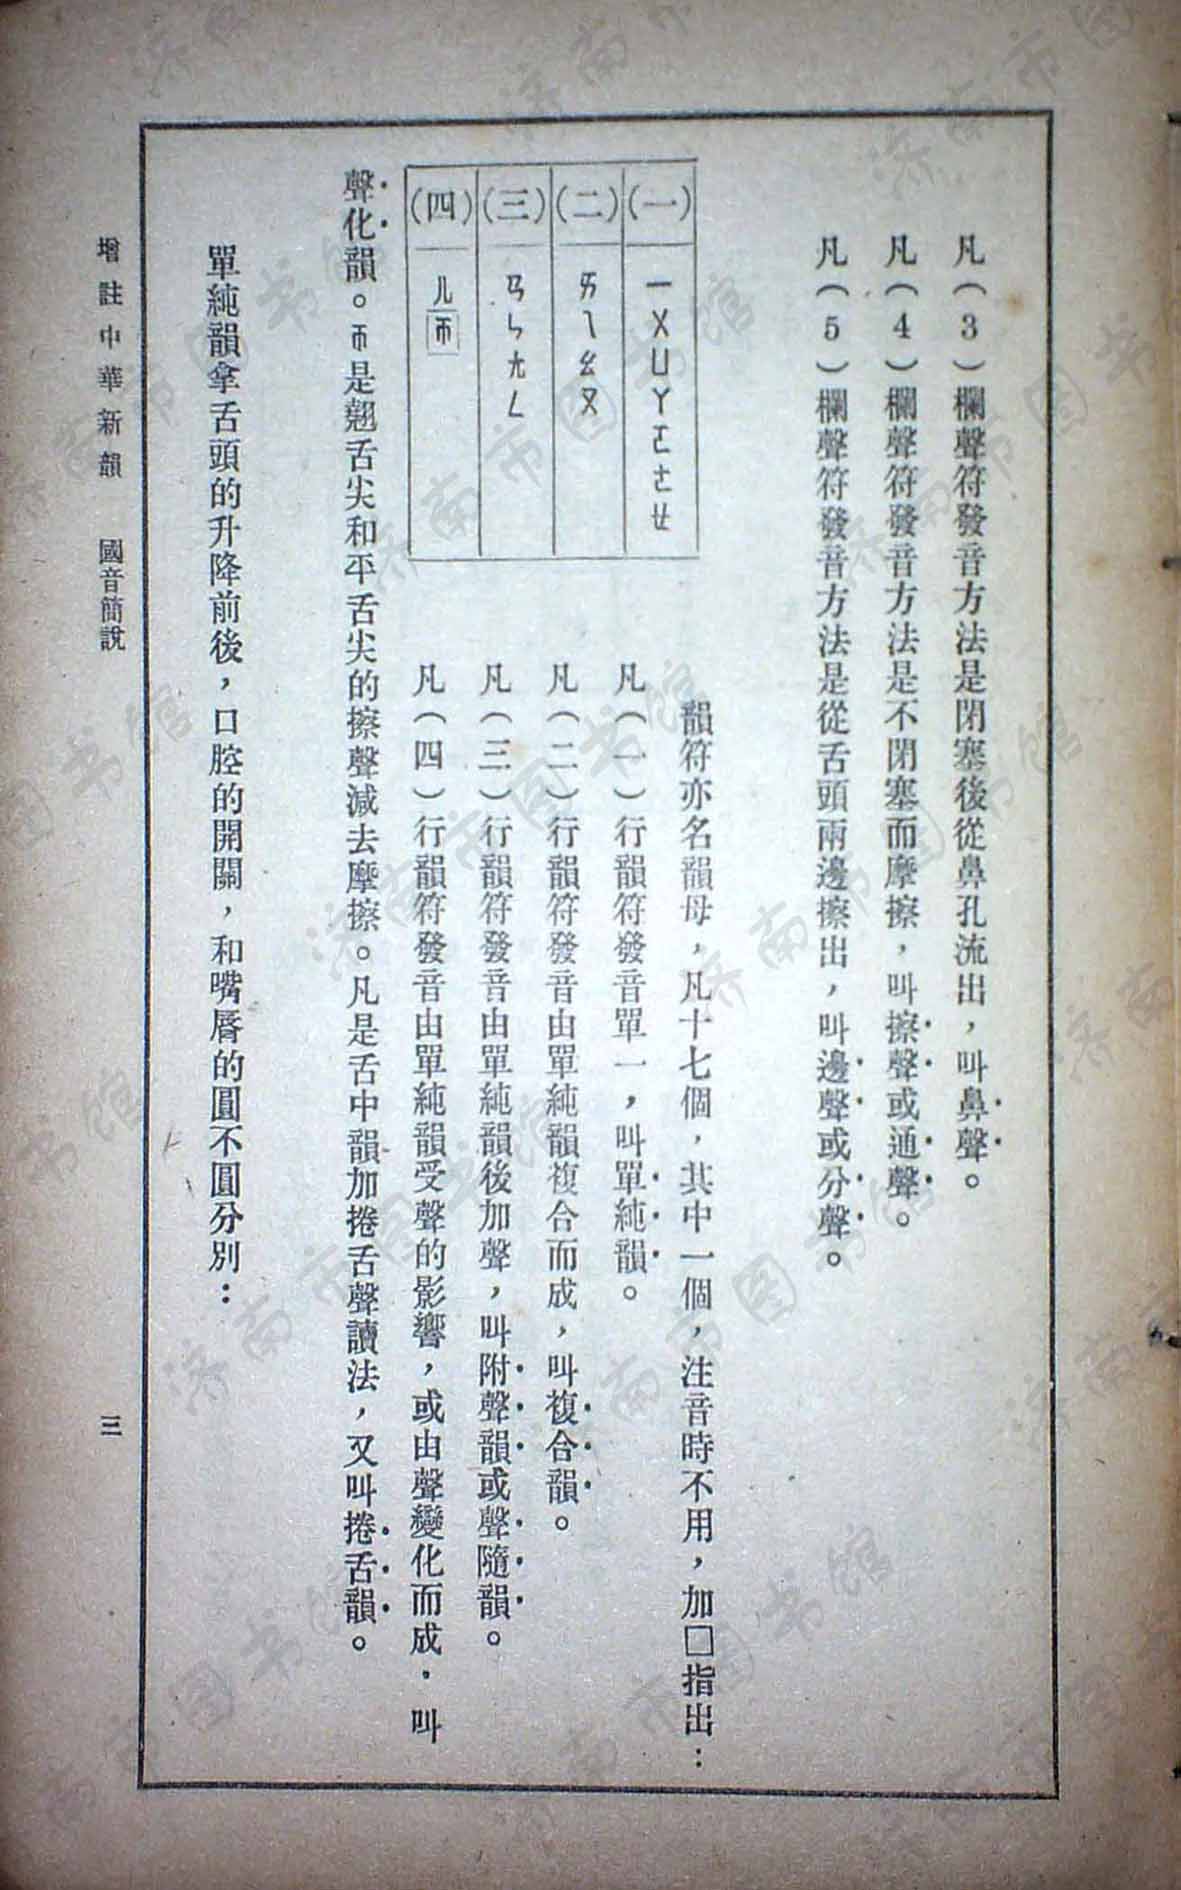 凡(3)欄聲符發音方法是閉塞後從鼻孔流出，叫鼻聲。
凡(4)欄聲符發音方法是不閉塞而摩擦，叫擦聲或通聲。
凡(5)欄聲符發音方法是從舌頭兩邊擦出，叫邊聲或分聲。
韻符亦名韻母，凡十七個，其中一個，注音時不用，加□指出：
(一) ㄧㄨㄩㄚㄛㄜㄝ
(二) ㄞㄟㄠㄡ
(三) ㄢㄣㄤㄥ
(四) ㄦㄭ
凡(一)行韻符發音單一，叫單純韻。
凡(二)行韻符發音由單純韻複合而成，叫複合韻。
凡(三)行韻符發音由單純韻後加聲，叫附聲韻或聲隨韻。
凡(四)行韻符發音由單純韻受聲的影響，或由聲變化而成，叫
聲化韻。ㄭ是翹舌尖和平舌尖的擦聲減去摩擦。凡是舌中韻加捲舌聲讀法，又叫捲舌韻。
單純韻拿舌頭的升降前後，口腔的開關，和嘴唇的圓不圓分別：
增註中華新韻 國音簡說 三
济南市图书馆